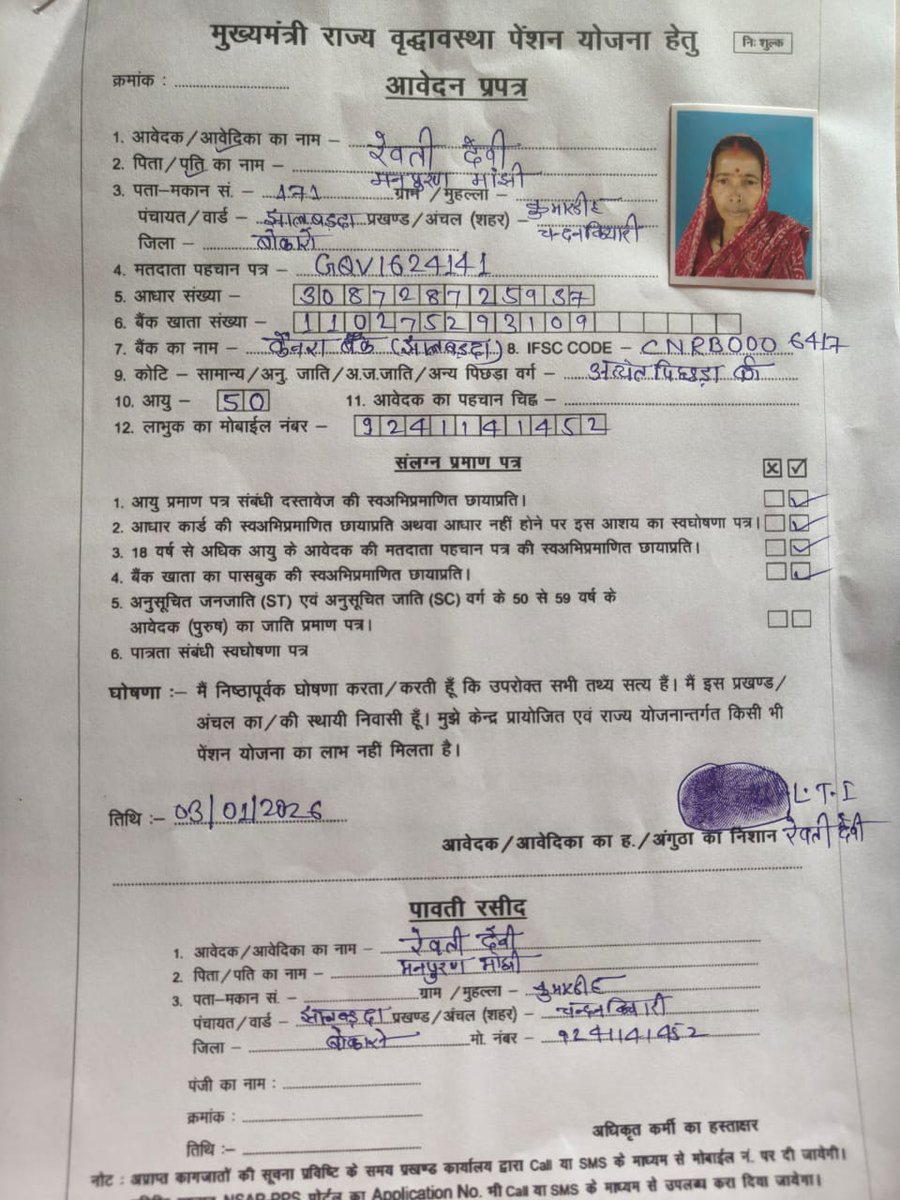 मुख्यमंत्री राज्य वृद्धावस्था पेंशन योजना हेतु
निः शुल्क
क्रमांक :
आवेदन प्रपत्र
1. आवेदक/आवेदिका का नाम – रेवती देवी
2. पिता/पति का नाम – मनपुरण मांझी
3. पता-मकान सं. – 171 ग्राम/मुहल्ला – कुमारडीह
पंचायत/वार्ड – झालबड़दा प्रखण्ड/अंचल (शहर) – चन्दनकियारी
जिला – बोकारो
4. मतदाता पहचान पत्र – GQV1624141
5. आधार संख्या – 308728725937
6. बैंक खाता संख्या – 110275293109
7. बैंक का नाम – केनरा बैंक (झालबड़दा) 8. IFSC CODE – CNRB0006417
9. कोटि – सामान्य/अनु. जाति/अ.ज.जाति/अन्य पिछडा वर्ग – अत्यंत पिछड़ा वर्ग
10. आयु – 50 11. आवेदक का पहचान चिह्न –
12. लाभुक का मोबाईल नंबर – 9241141452
संलग्न प्रमाण पत्र
1. आयु प्रमाण पत्र संबंधी दस्तावेज की स्वअभिप्रमाणित छायाप्रति।
2. आधार कार्ड की स्वअभिप्रमाणित छायाप्रति अथवा आधार नहीं होने पर इस आशय का स्वघोषणा पत्र।
3. 18 वर्ष से अधिक आयु के आवेदक की मतदाता पहचान पत्र की स्वअभिप्रमाणित छायाप्रति।
4. बैंक खाता का पासबुक की स्वअभिप्रमाणित छायाप्रति।
5. अनुसूचित जनजाति (ST) एवं अनुसूचित जाति (SC) वर्ग के 50 से 59 वर्ष के
आवेदक (पुरुष) का जाति प्रमाण पत्र।
6. पात्रता संबंधी स्वघोषणा पत्र
घोषणा :– मैं निष्ठापूर्वक घोषणा करता/करती हूँ कि उपरोक्त सभी तथ्य सत्य हैं। मैं इस प्रखण्ड/
अंचल का/की स्थायी निवासी हूँ। मुझे केन्द्र प्रायोजित एवं राज्य योजनान्तर्गत किसी भी
पेंशन योजना का लाभ नहीं मिलता है।
L.T.I
तिथि :– 03/01/2026
आवेदक/आवेदिका का ह./अंगुठा का निशान रेवती देवी
पावती रसीद
1. आवेदक/आवेदिका का नाम – रेवती देवी
2. पिता/पति का नाम – मनपुरण मांझी
3. पता-मकान सं. – ग्राम/मुहल्ला – कुमारडीह
पंचायत/वार्ड – झालबड़दा प्रखण्ड/अंचल (शहर) – चन्दनकियारी
जिला – बोकारो मो. नंबर – 9241141452
पंजी का नाम :
क्रमांक :
अधिकृत कर्मी का हस्ताक्षर
तिथि :–
नोट : अप्राप्त कागजातों की सूचना प्रविष्टि के समय प्रखण्ड कार्यालय द्वारा Call या SMS के माध्यम से मोबाईल नं. पर दी जायेगी।
NSAP-PPS पोर्टल का Application No. भी Call या SMS के माध्यम से उपलब्ध करा दिया जायेगा।